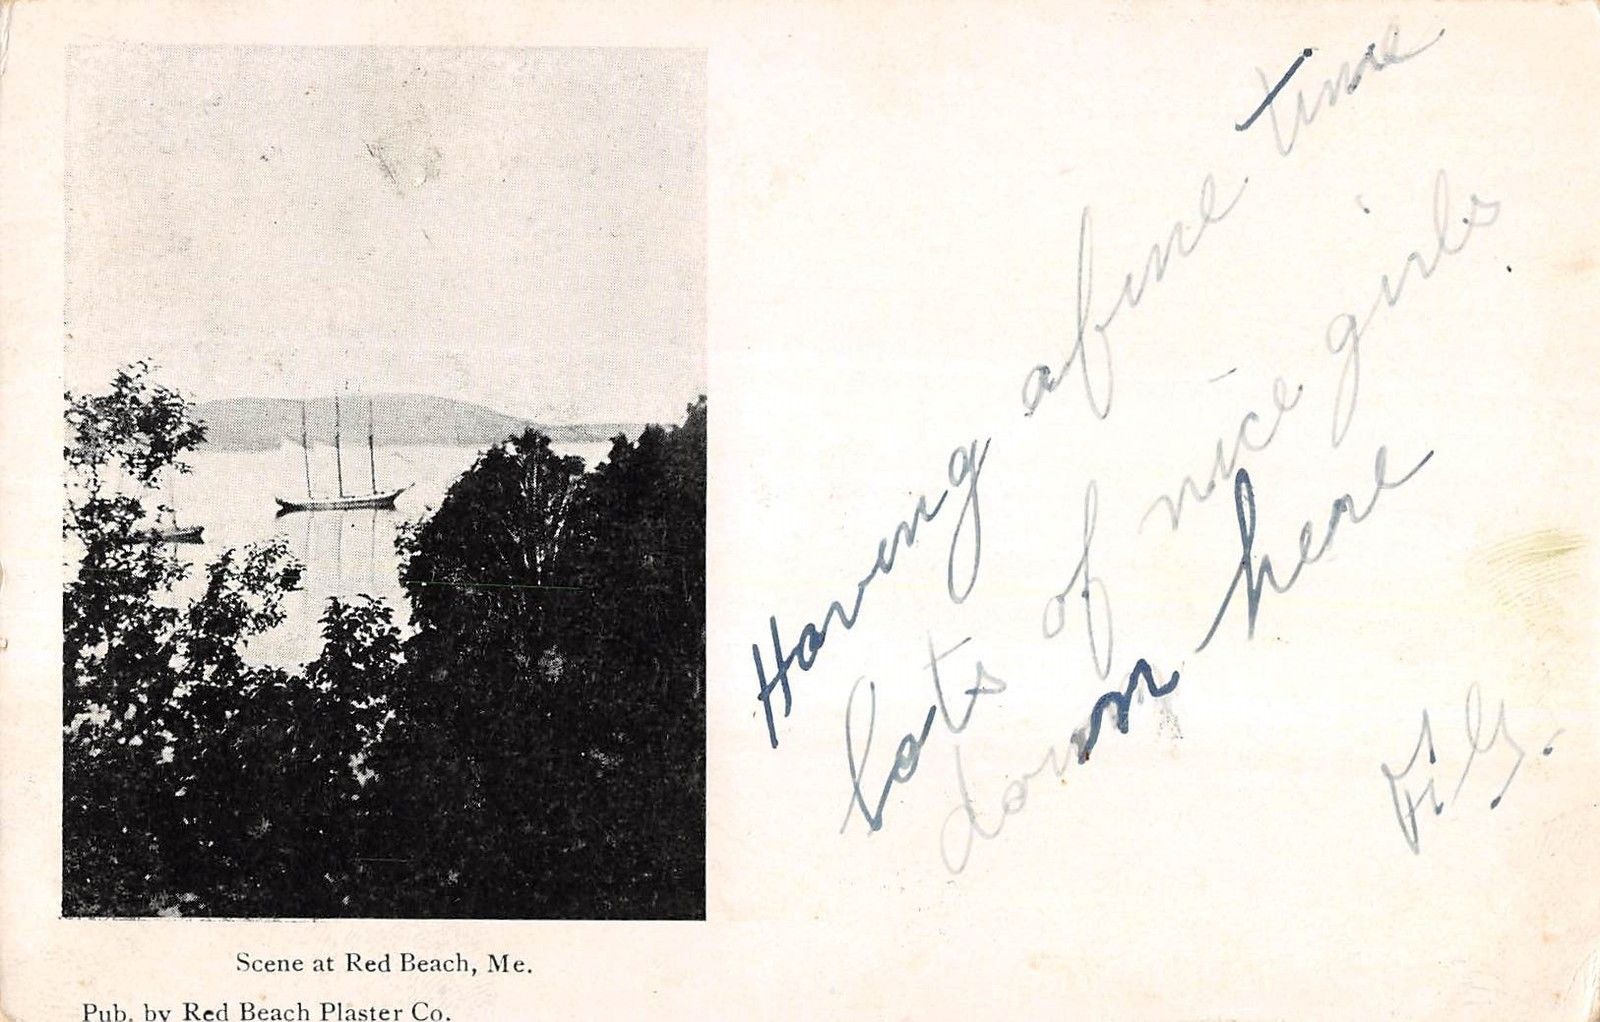 Having a fine time
lots of nice girls
down here
Scene at Red Beach, Me.
Pub. by Red Beach Plaster Co.